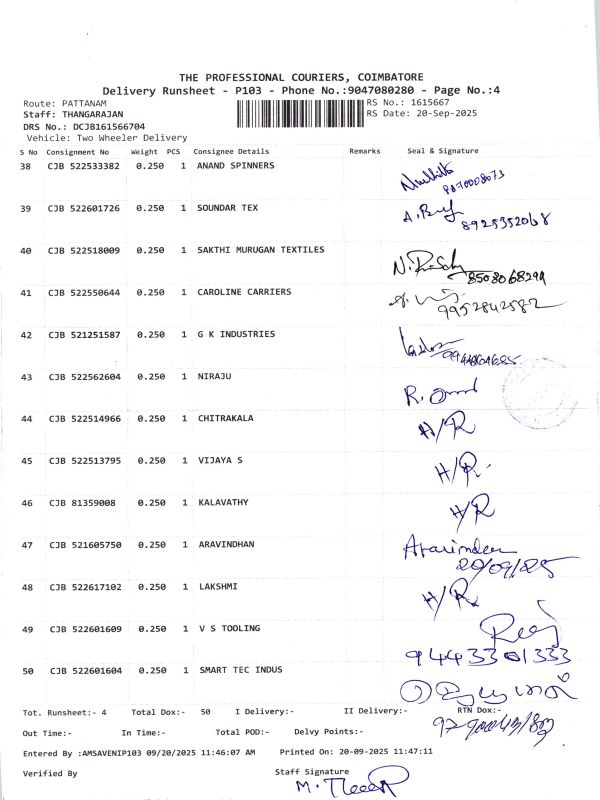 THE PROFESSIONAL COURIERS, COIMBATORE
Delivery Runsheet - P103 - Phone No.:9047080280 - Page No.:4
Route: PATTANAM RS No.: 1615667
Staff: THANGARAJAN RS Date: 20-Sep-2025
DRS No.: DCJB161566704
Vehicle: Two Wheeler Delivery
S No Consignment No Weight PCS Consignee Details Remarks Seal & Signature
38 CJB 522533382 0.250 1 ANAND SPINNERS
39 CJB 522601726 0.250 1 SOUNDAR TEX
8925352068
40 CJB 522518009 0.250 1 SAKTHI MURUGAN TEXTILES
41 CJB 522550644 0.250 1 CAROLINE CARRIERS
9952842582
42 CJB 521251587 0.250 1 G K INDUSTRIES
43 CJB 522562604 0.250 1 NIRAJU
44 CJB 522514966 0.250 1 CHITRAKALA H/R
45 CJB 522513795 0.250 1 VIJAYA S H/R
46 CJB 81359008 0.250 1 KALAVATHY H/R
47 CJB 521605750 0.250 1 ARAVINDHAN
20/09/25
48 CJB 522617102 0.250 1 LAKSHMI H/R
49 CJB 522601609 0.250 1 V S TOOLING
9443301333
50 CJB 522601604 0.250 1 SMART TEC INDUS
Tot. Runsheet:- 4 Total Dox:- 50 I Delivery:- II Delivery:- RTN Dox:-
Out Time:- In Time:- Total POD:- Delvy Points:-
Entered By :AMSAVENIP103 09/20/2025 11:46:07 AM Printed On: 20-09-2025 11:47:11
Verified By Staff Signature